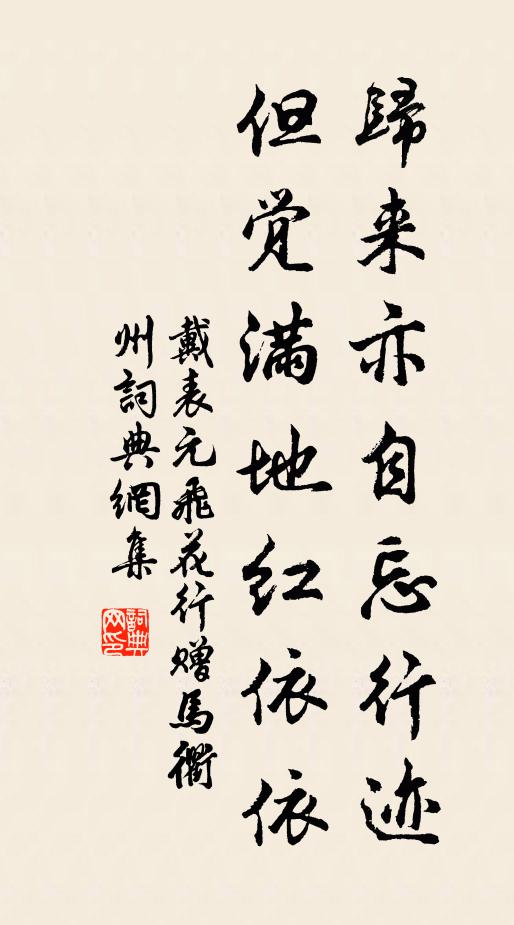 歸来亦自忘行迹
但觉满地红依依
戴表元飛花行贈馬衢
州詞典網集
詞典网印